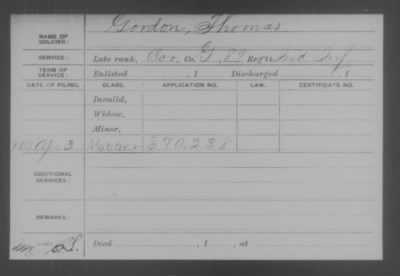 NAME OF SOLDIER: Gordon, Thomas
SERVICE: Late rank, Cor. Co. G, 87 Reg't Ind Inf
TERM OF SERVICE: Enlisted , 1 Discharged , 1
DATE OF FILING. CLASS. APPLICATION NO. LAW. CERTIFICATE NO.
Invalid,
Widow,
Minor,
Mother 370,238
ADDITIONAL SERVICES:
REMARKS:
Died , 1 , at